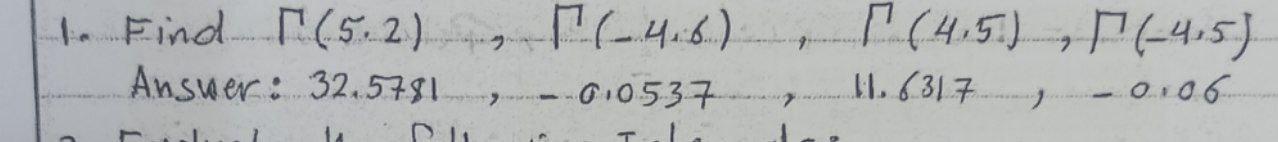 1. Find Γ(5.2) , Γ(-4.6) , Γ(4.5) , Γ(-4.5)
Answer: 32.5781 , -0.0537 , 11.6317 , -0.06